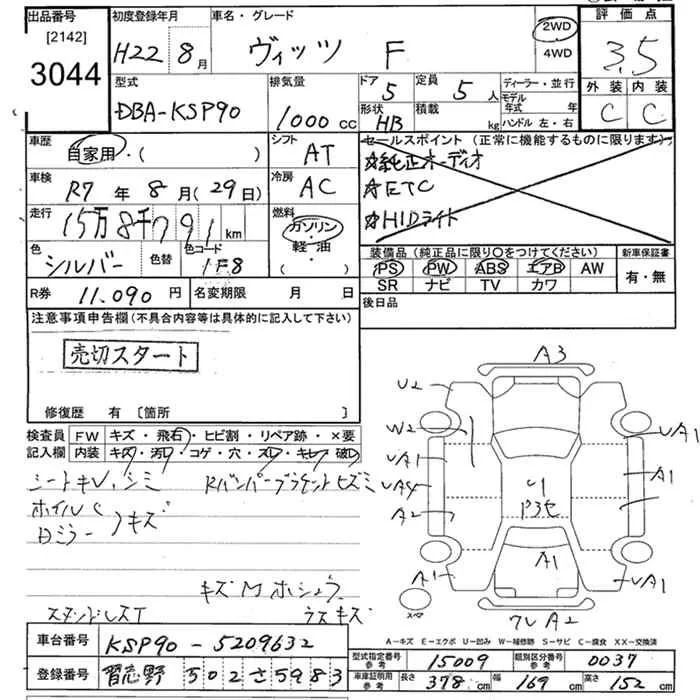 出品番号 初度登録年月 車名・グレード 評価点
[2142] 3044 H22 8月 ヴィッツ F 2WD 4WD 3.5
外装 内装
C C
型式 排気量 ドア 定員 ディーラー・並行
DBA-KSP90 1000cc 5 5人 モデル年式 年
形状 積載 ハンドル 左・右
HB kg
車歴 自家用・( ) シフト AT セールスポイント(正常に機能するものに限ります)
純正オーディオ
車検 R7年8月(29日) 冷房 AC ETC
走行 15万8千791km 燃料 ガソリン・軽油・( ) HIDライト
色 シルバー 色替 色コード 1E8
装備品(純正品に限り○をつけてください) 新車保証書
PS PW ABS エアB AW 有・無
SR ナビ TV カワ
R券 11,090円 名変期限 月 日 後日品
注意事項申告欄(不具合内容等は具体的に記入して下さい)
売切スタート
修復歴 有 [箇所 ]
検査員記入欄 FW キズ・飛石・ヒビ割・リペア跡・×要
内装 キズ・汚れ・コゲ・穴・スレ・キレ・破れ
シートキレ、シミ Rバンパーブラケットヒズミ
ホイルC
Dミラー )キズ
キズM ホシュウ
ラスキズ
A3
U2
W2 UA1
UA1 A1
UA4 U1
A2
A1
A1 UA1
A2
A-キズ E-エクボ U-凹み W-補修跡 S-サビ C-腐食 XX-交換済
車台番号 KSP90-5209632
登録番号 習志野 502 さ 5983
型式指定番号 参考 15009 類別区分番号 参考 0037
車庫証明用 参考 長さ 378cm 幅 169cm 高さ 152cm